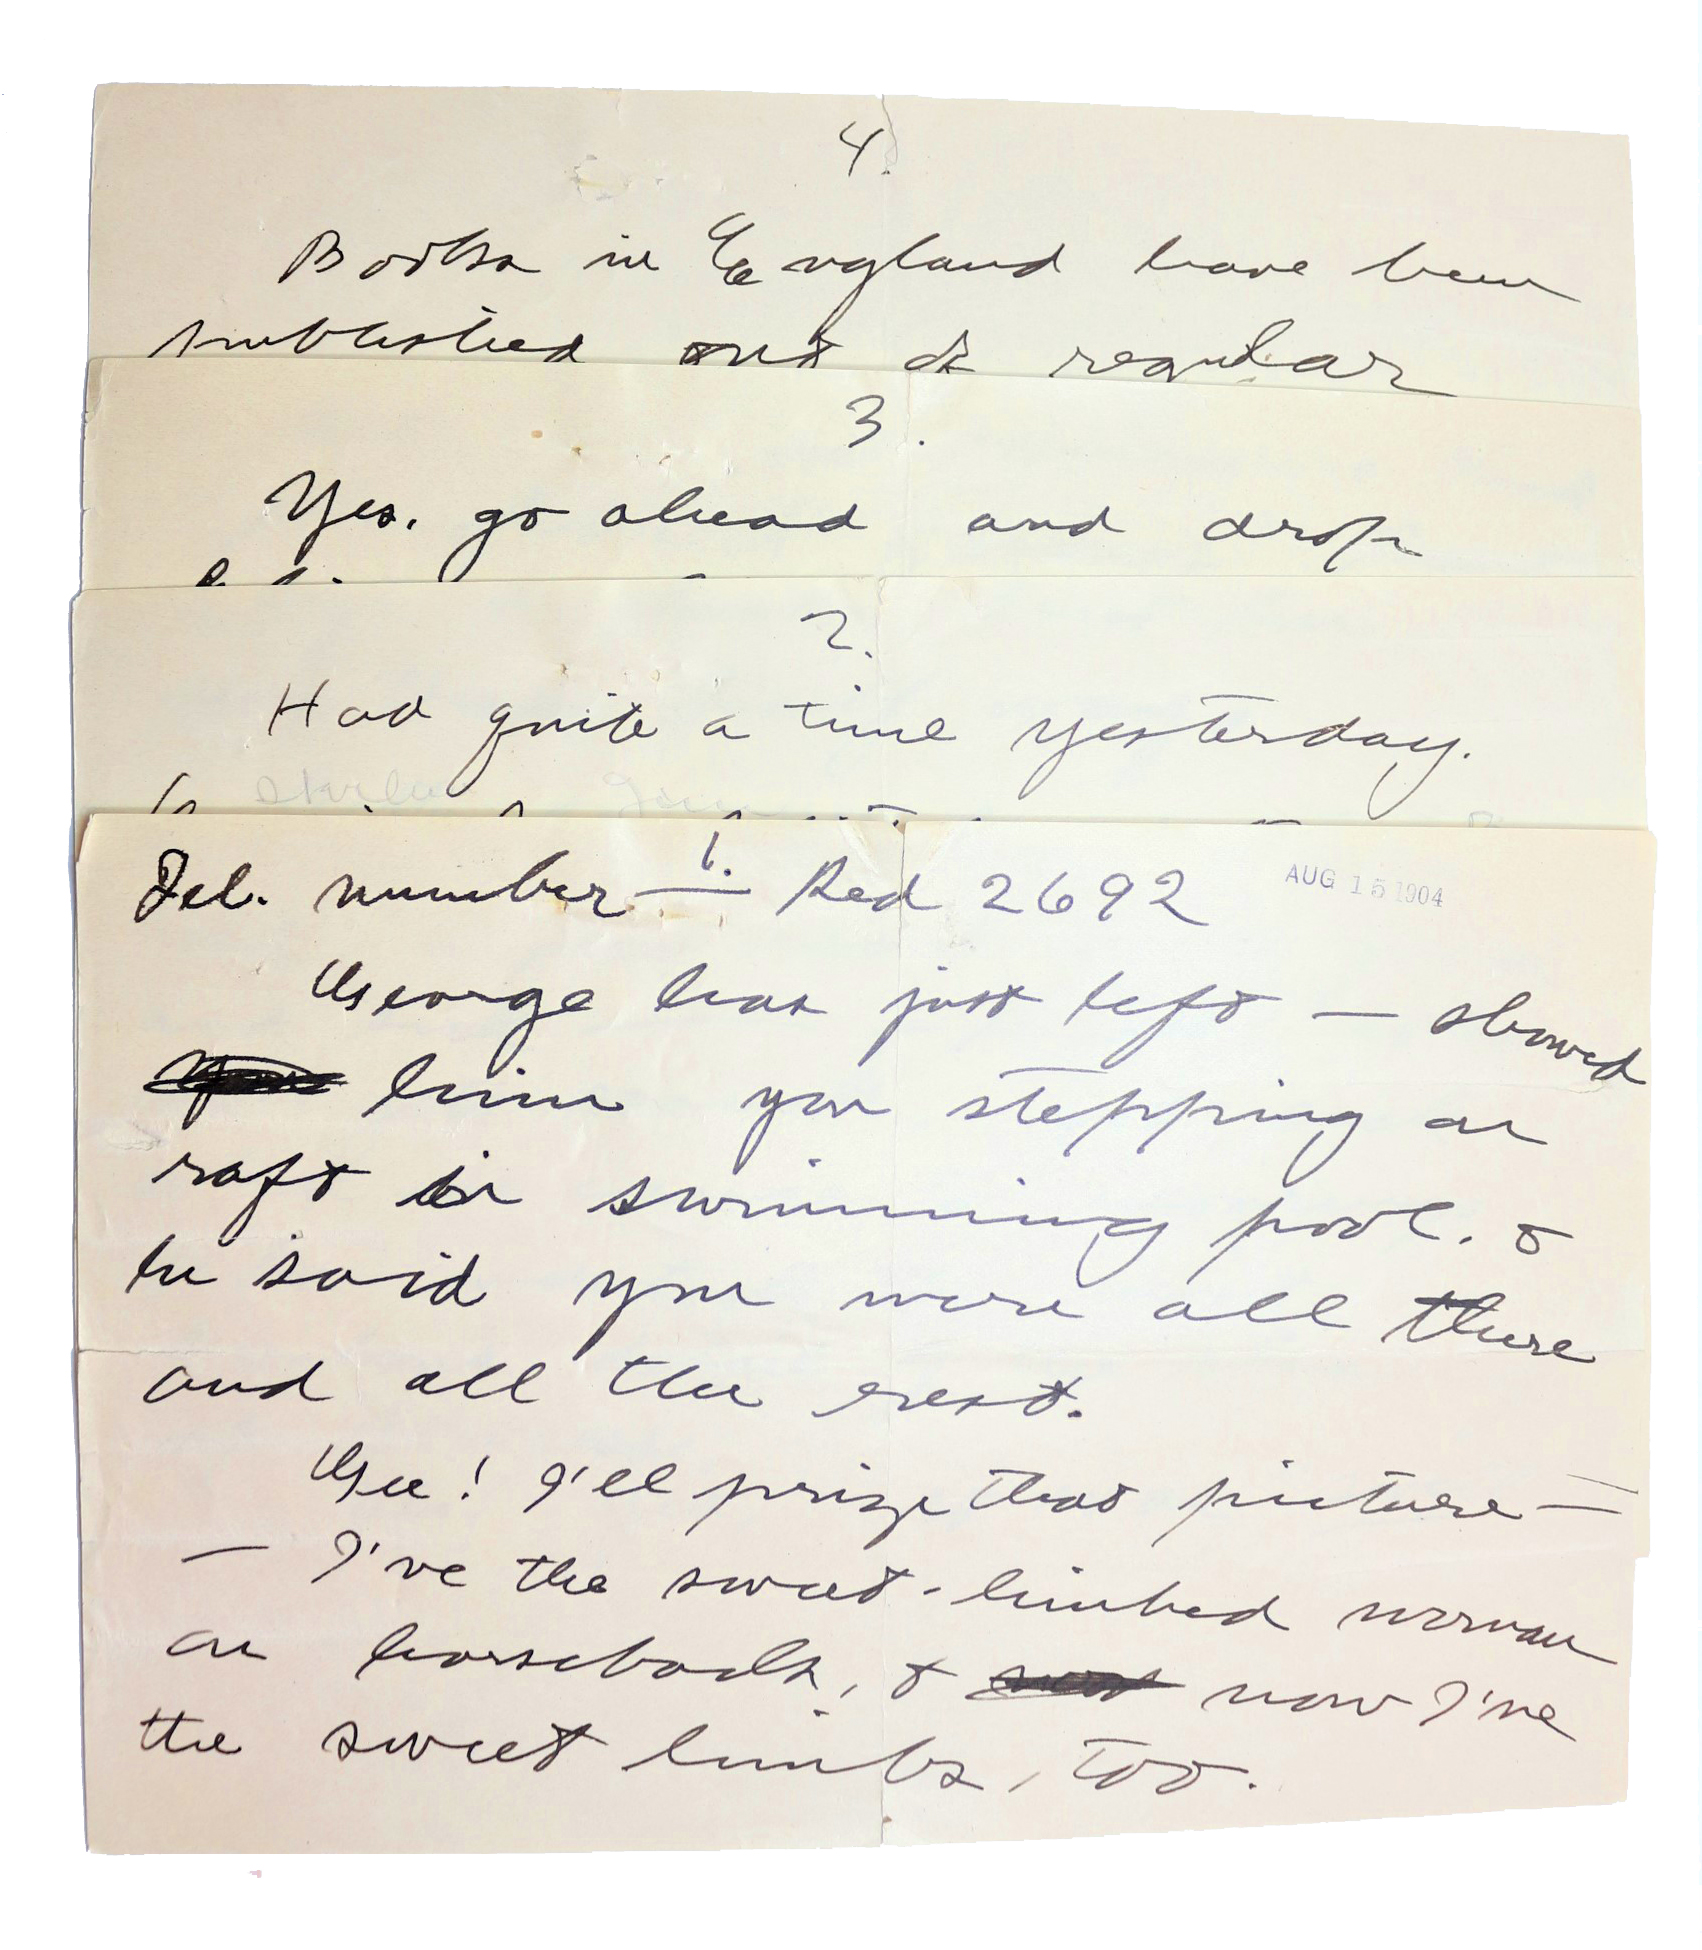 4.
Books in England have been
published out of regular
3.
Yes. go ahead and drop
2.
Had quite a time yesterday.
1.
Tel. number — Red 2692
AUG 15 1904
George has just left — showed
him you stepping on
raft in swimming pool. &
he said you were all there
and all the rest.
Gee! I'll prize that picture —
— I've the sweet-limbed woman
on horseback, & now I've
the sweet limbs, too.